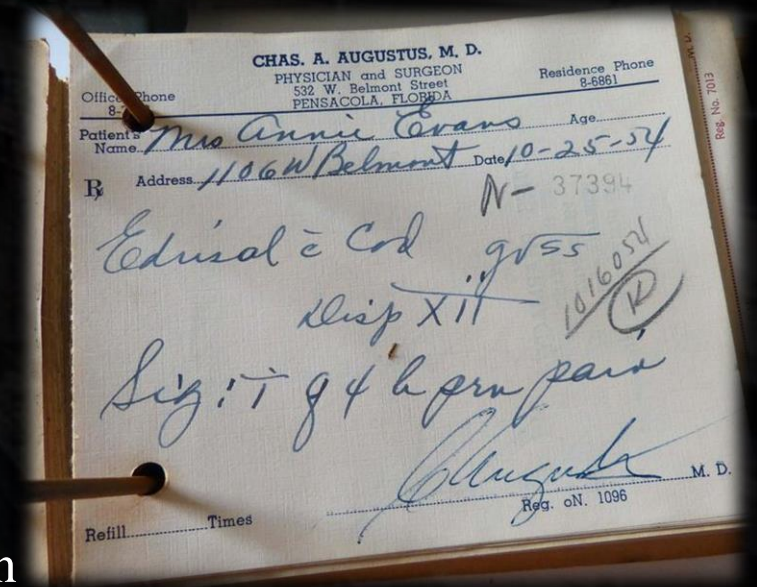 CHAS. A. AUGUSTUS, M. D.
PHYSICIAN and SURGEON
532 W. Belmont Street
PENSACOLA, FLORIDA
Office Phone
8-
Residence Phone
8-6861
Patient's Name Mrs Annie Evans Age
Address 1106 W Belmont Date 10-25-54
℞
N- 37394
Edrisal c̄ Cod gr ss
Disp XII
1016054
R
Sig: i q 4 h prn pain
C Augustus M. D.
Reg. oN. 1096
Refill Times
Reg. No. 7013
M. D.
n